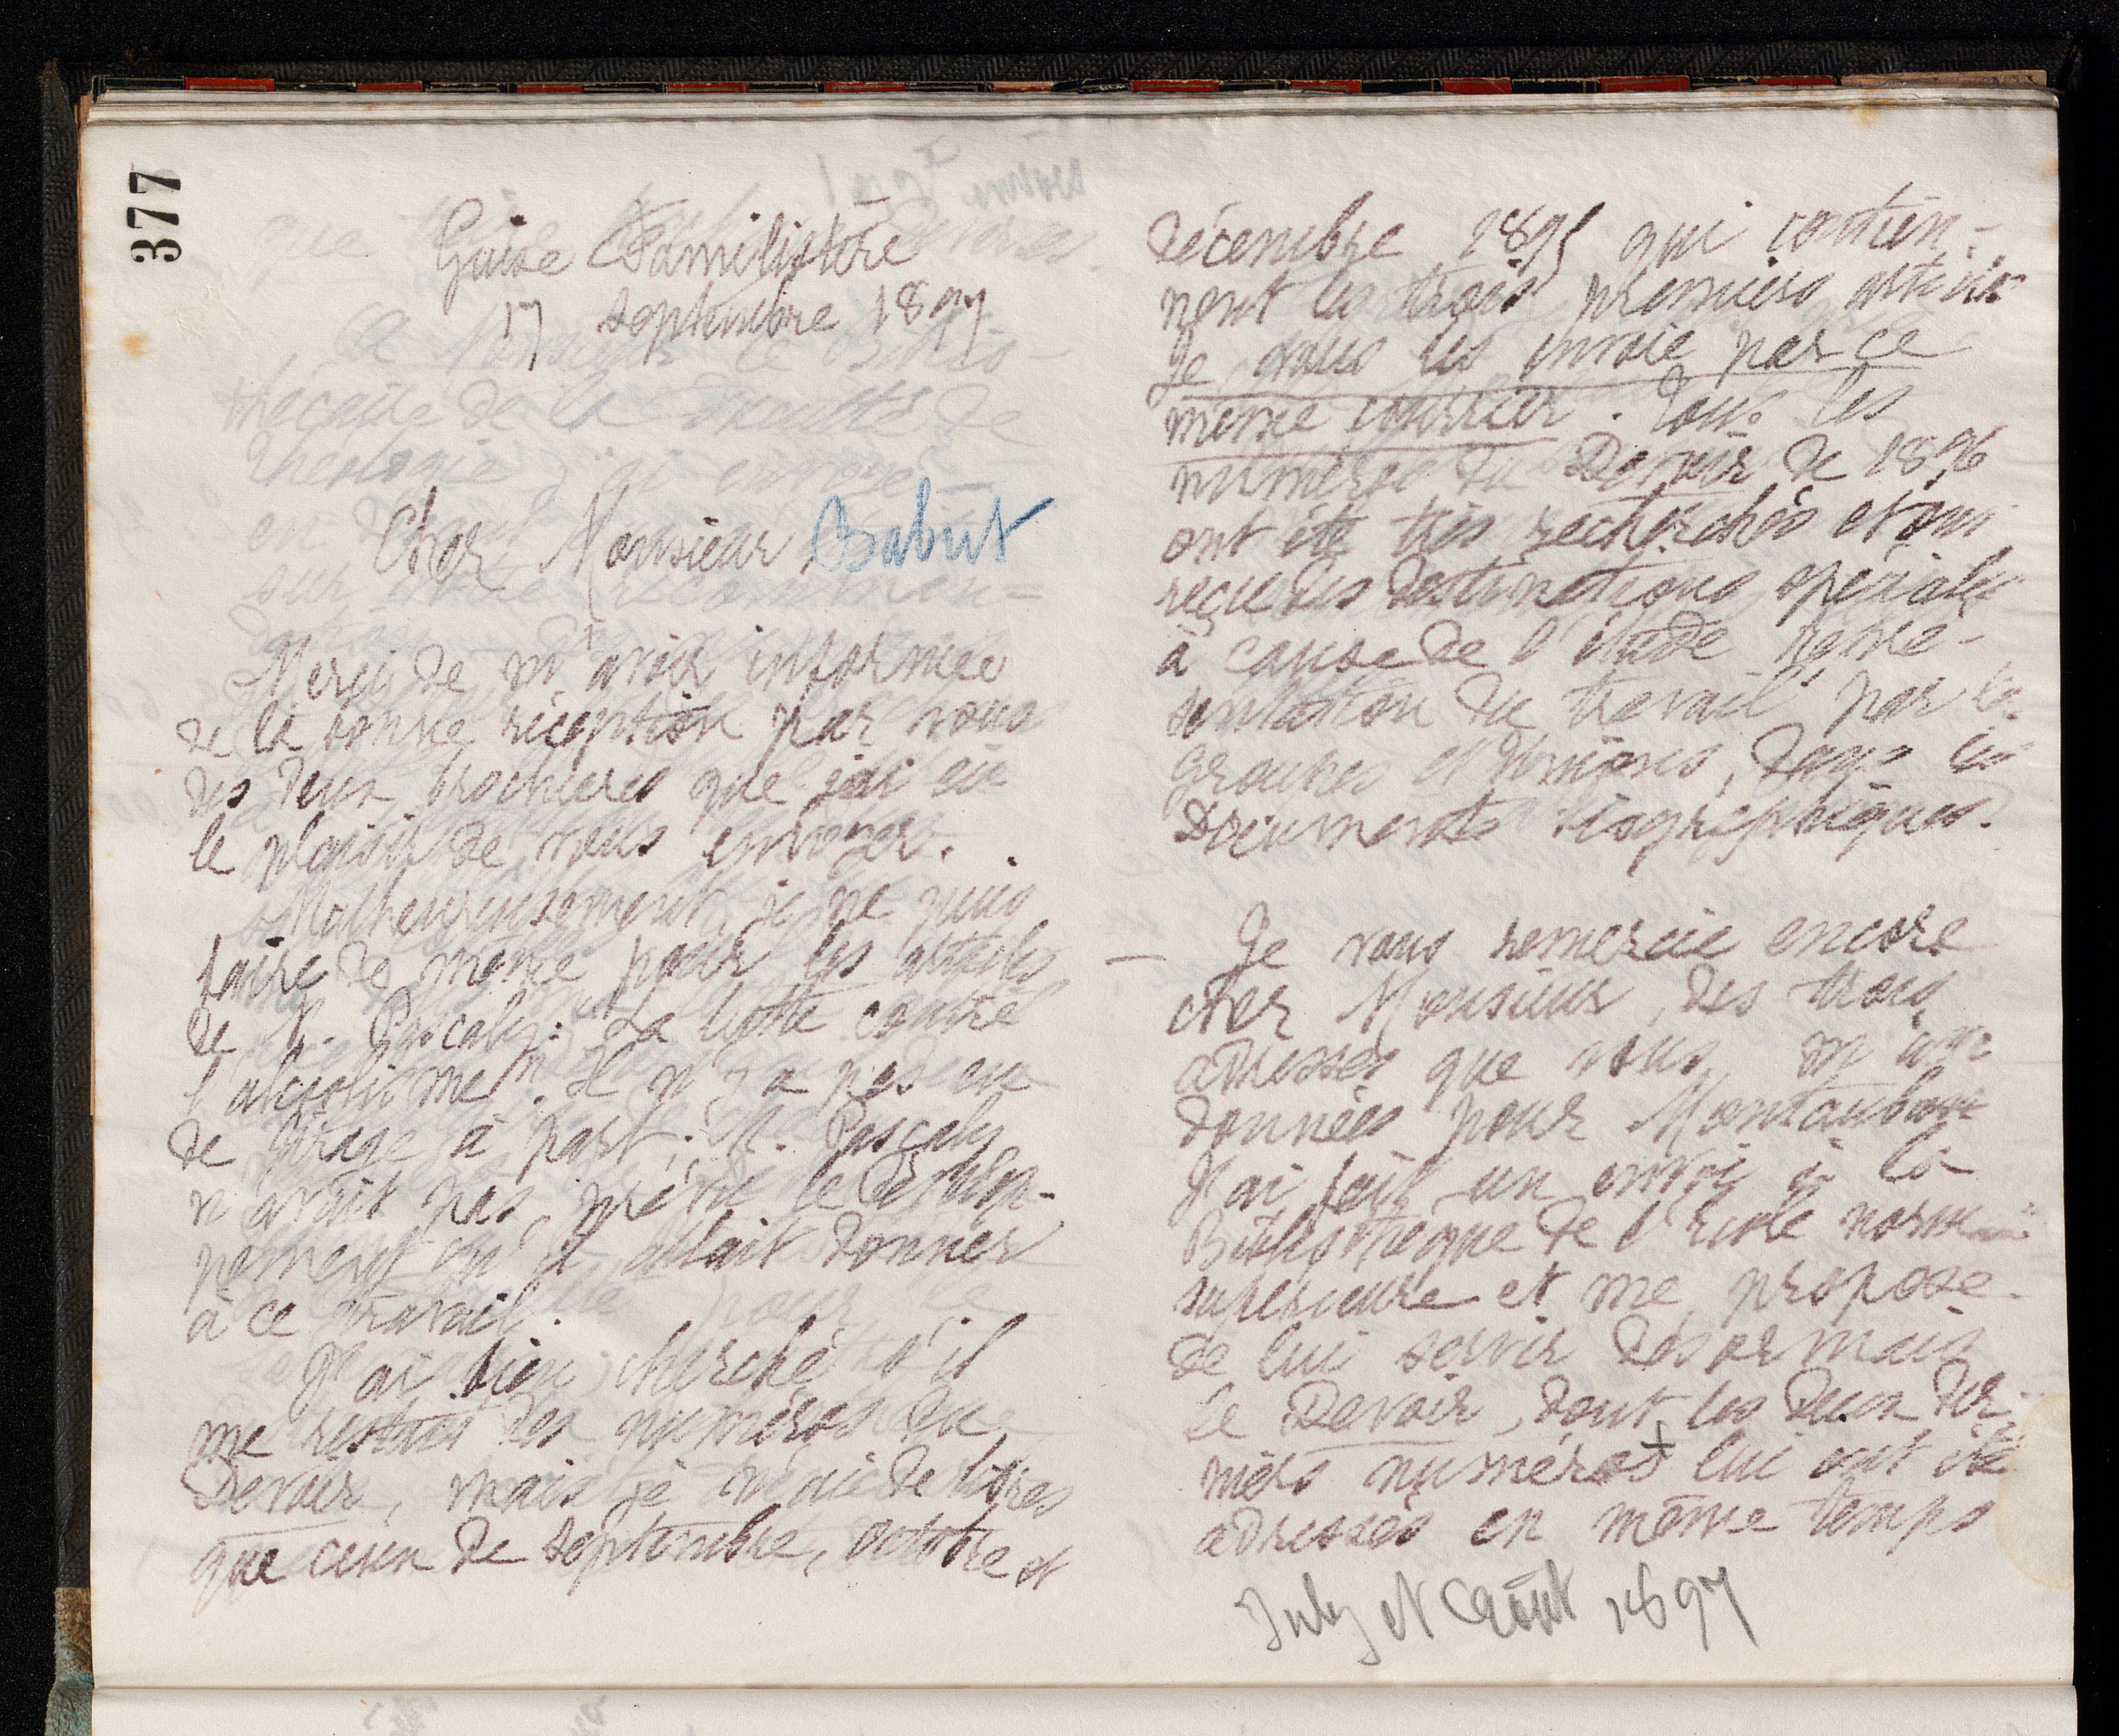 377
Guise Familistère
17 septembre 1897
Cher Monsieur Babut
Merci de m'avoir informée
de la bonne réception par vous
des deux brochures que j'ai eu
le plaisir de vous envoyer.
Malheureusement, je ne puis
faire de même pour les articles
de M. Pascaly: "La lutte contre
l'alcoolisme". Il n'y a pas eu
de tirage à part; M. Pascaly
n'avait pas prévu le dévelop-
pement qu'il allait donner
à ce travail.
J'ai bien cherché s'il
me restait des numéros du
Devoir, mais je n'ai de libres
que ceux de septembre, octobre et
décembre 1895 qui contien-
nent les trois premiers articles
Je vous les envoie par ce
même courrier. Tous les
numéros du Devoir de 1896
ont été très recherchés et ont
reçu des destinations spéciales
à cause de l'étude repré-
sentation du travail par les
groupes et Unions, dans les
Documents biographiques.
— Je vous remercie encore
cher Monsieur, des trois
adresses que vous m'avez
données pour Montauban
J'ai fait un envoi à la
Bibliothèque de l'Ecole normale
supérieure et me propose
de lui servir désormais
le Devoir, dont les deux der-
niers numéros + lui ont été
adressés en même temps
July et Août 1897